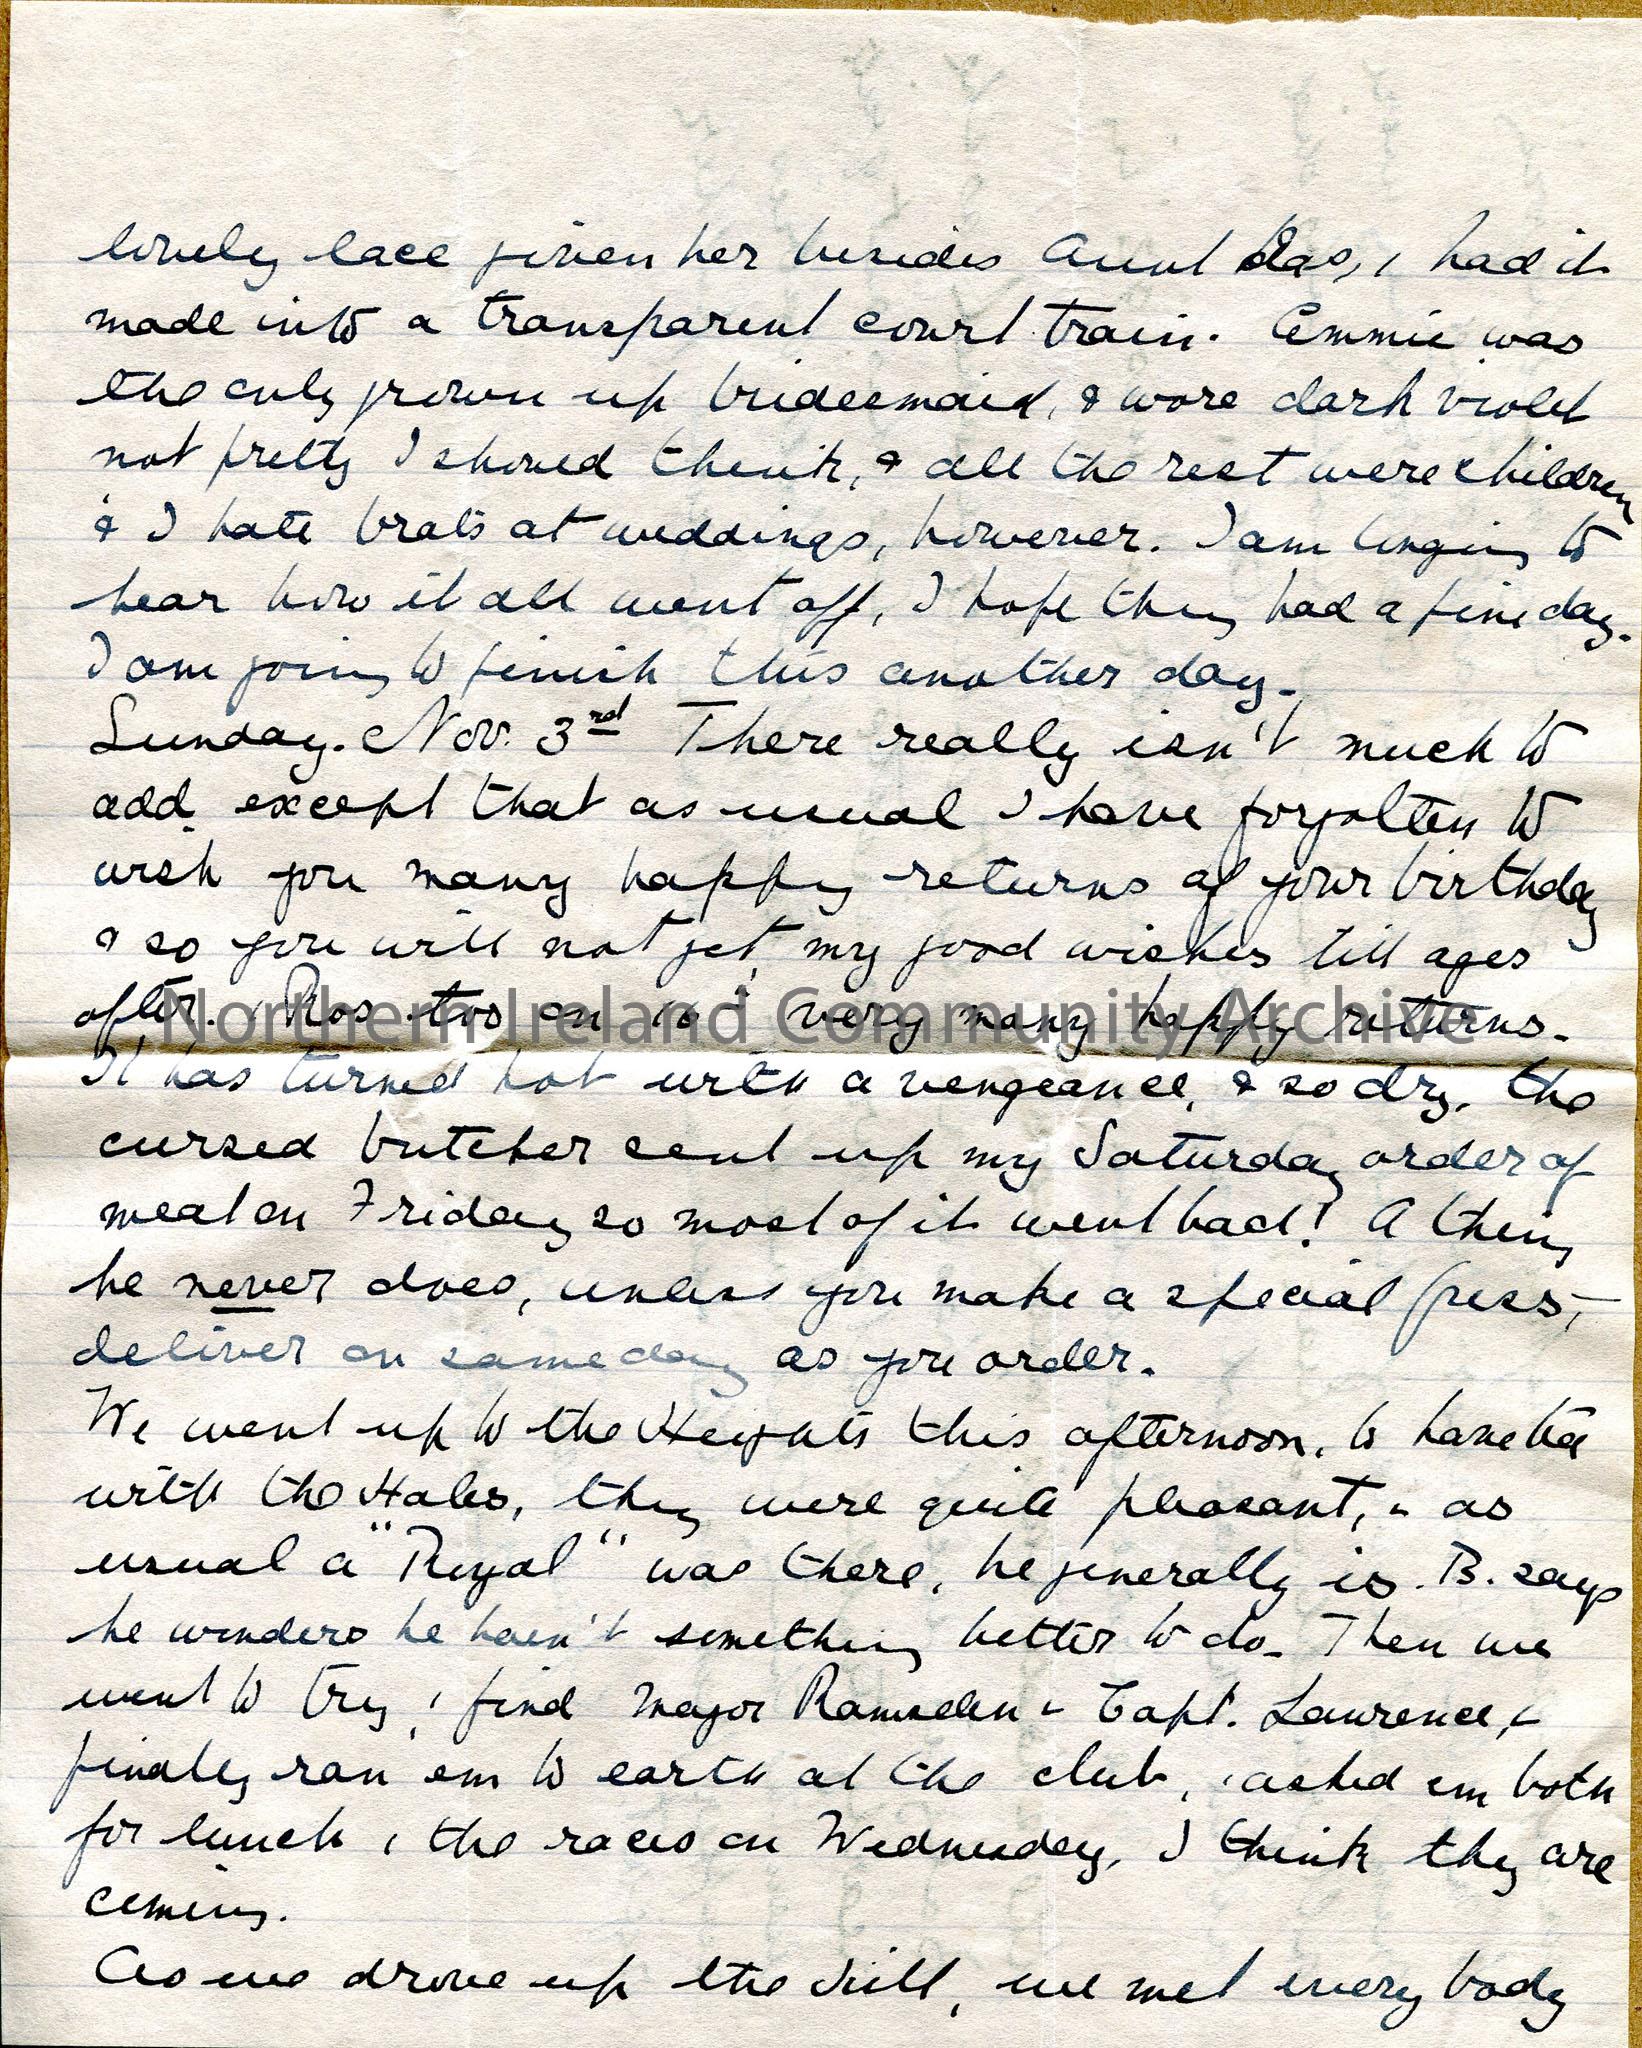 lovely lace given her besides Aunt Has, & had it
made into a transparent court train. Emmie was
the only grown up bridesmaid, & wore dark violet
not pretty I should think, & all the rest were children
& I hate brats at weddings, however. I am longing to
hear how it all went off, I hope they had a fine day.
I am going to finish this another day.
Sunday. Nov. 3rd There really isn't much to
add, except that as usual I have forgotten to
wish you many happy returns of your birthday
& so you will not get my good wishes till ages
after. & Ros too on 10th very many happy returns.
Northern Ireland Community Archive
It has turned hot with a vengeance, & so dry, the
cursed butcher sent up my Saturday order of
meat on Friday so most of it went bad! A thing
he never does, unless you make a special fuss,
deliver on same day as you order.
We went up to the Heights this afternoon, to have tea
with the Hales, they were quite pleasant, & as
usual a "Royal" was there, he generally is. B. says
he wonders he hasn't something better to do. Then we
went to try & find Major Ramsden & Capt. Lawrence, &
finally ran 'em to earth at the club, & asked em both
for lunch & the races on Wednesday, I think they are
coming.
As we drove up the hill, we met every body